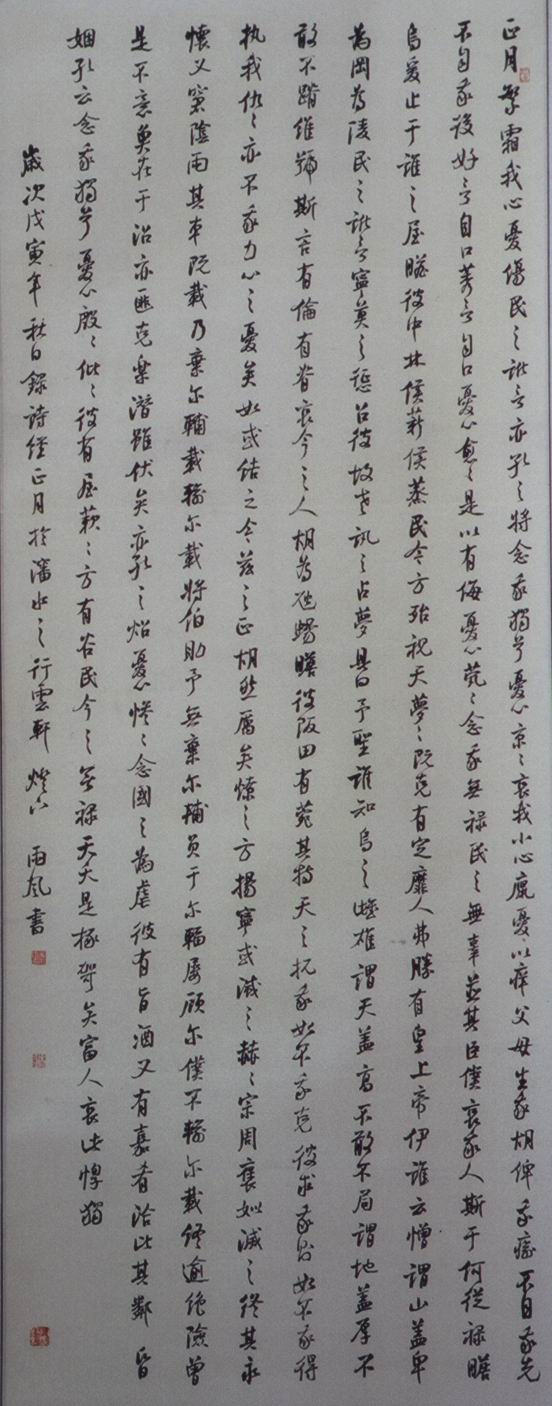 正月繁霜我心憂傷民之訛言亦孔之將念我獨兮憂心京〻哀我小心癙憂以痒父母生我胡俾我瘉不自我先
不自我後好言自口莠言自口憂心愈〻是以有侮憂心惸〻念我無祿民之無辜並其臣僕哀我人斯于何從祿瞻
烏爰止于誰之屋瞻彼中林侯薪侯蒸民今方殆視天夢〻既克有定靡人弗勝有皇上帝伊誰云憎謂山蓋卑
為岡為陵民之訛言寧莫之懲召彼故老訊之占夢具曰予聖誰知烏之雌雄謂天蓋高不敢不局謂地蓋厚不
敢不蹐維號斯言有倫有脊哀今之人胡為虺蜴瞻彼阪田有菀其特天之扤我如不我克彼求我則如不我得
執我仇〻亦不我力心之憂矣如或結之今茲之正胡然厲矣燎之方揚寧或滅之赫〻宗周褒姒滅之終其永
懷又窘陰雨其車既載乃棄爾輔載輸爾載將伯助予無棄爾輔員于爾輻屢顧爾僕不輸爾載終逾絕險曾
是不意魚在于沼亦匪克樂潛雖伏矣亦孔之炤憂心慘〻念國之為虐彼有旨酒又有嘉肴洽比其鄰 昏
姻孔云念我獨兮憂心慇〻佌〻彼有屋蔌〻方有谷民今之無祿天夭是椓哿矣富人哀此惸獨
歲次戊寅年秋日錄詩經正月於瀋水之行雲軒 燈下 雨風書